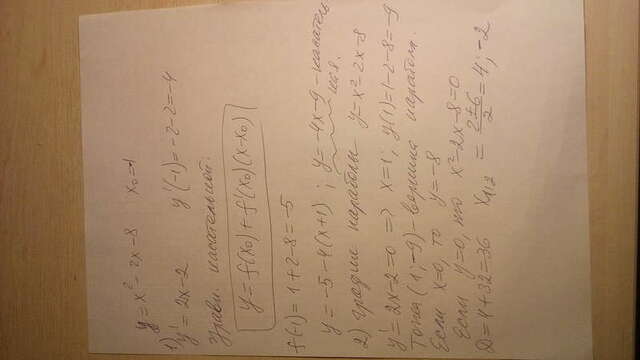 y = x² - 2x - 8 x₀ = -1
1) y' = 2x - 2 y'(-1) = -2 - 2 = -4
Уравн. касательной.
y = f(x₀) + f'(x₀)(x - x₀)
f(-1) = 1 + 2 - 8 = -5
y = -5 - 4(x + 1) ; y = -4x - 9 - касатель
ная.
2) График параболы y = x² - 2x - 8
y' = 2x - 2 = 0 => x = 1; y(1) = 1 - 2 - 8 = -9
Точка (1; -9) - вершина параболы.
Если x = 0, то y = -8
Если y = 0, то x² - 2x - 8 = 0
D = 4 + 32 = 36 x₁,₂ = (2 ± 6)/2 = 4; -2